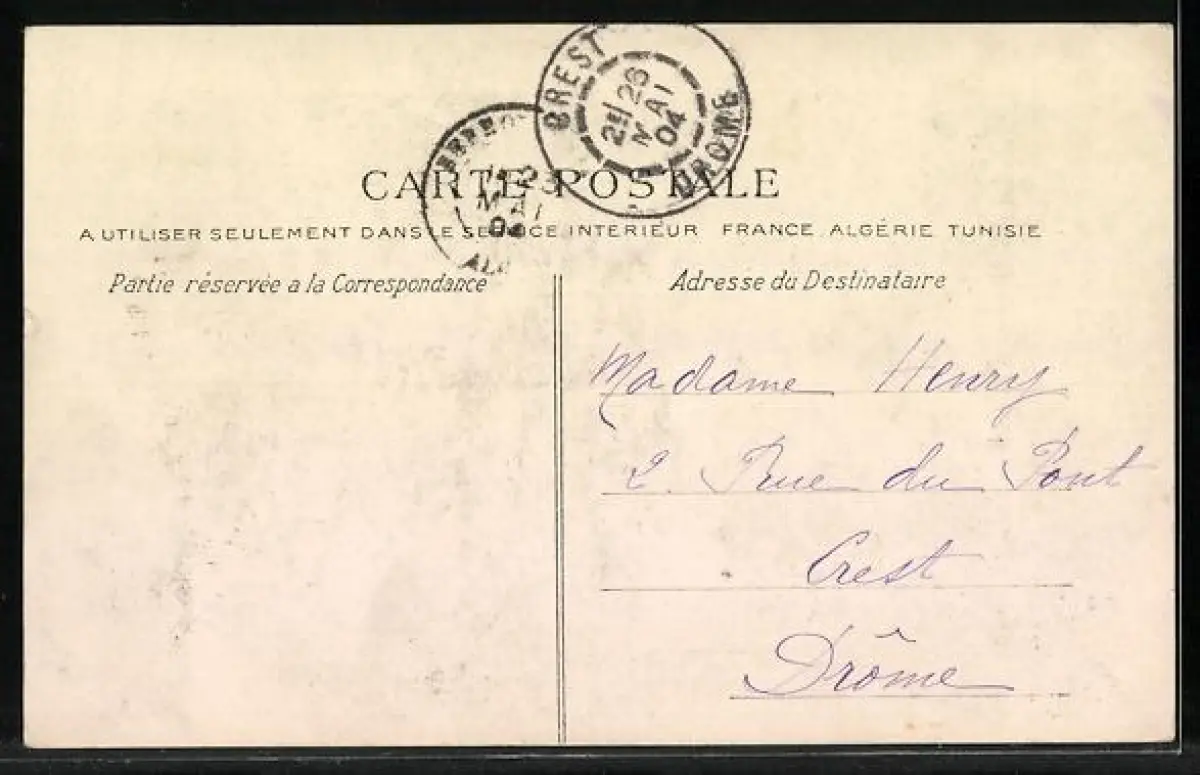 CREST
2E/26
MAI
04
DROME
23
MAI
04
CARTE POSTALE
A UTILISER SEULEMENT DANS LE SERVICE INTERIEUR FRANCE, ALGÉRIE TUNISIE
Partie réservée a la Correspondance
Adresse du Destinataire
Madame Henry
2. Rue du Pont
Crest
Drôme